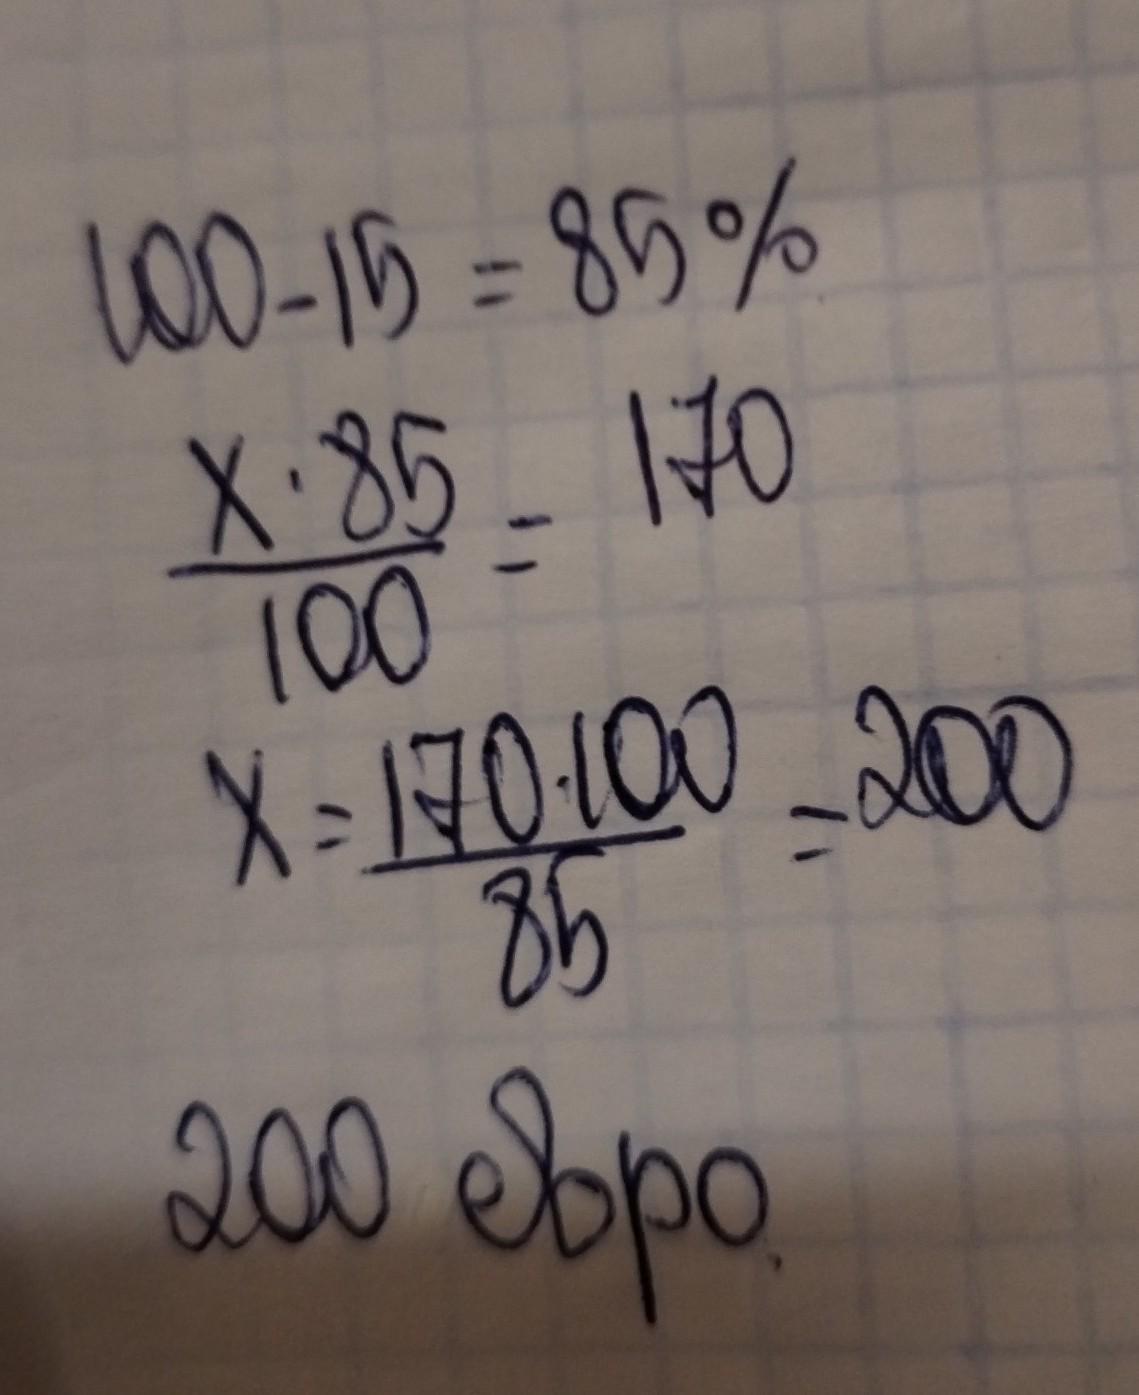 100-15 = 85%
x·85/100 = 170
x = 170·100/85 = 200
200 евро.